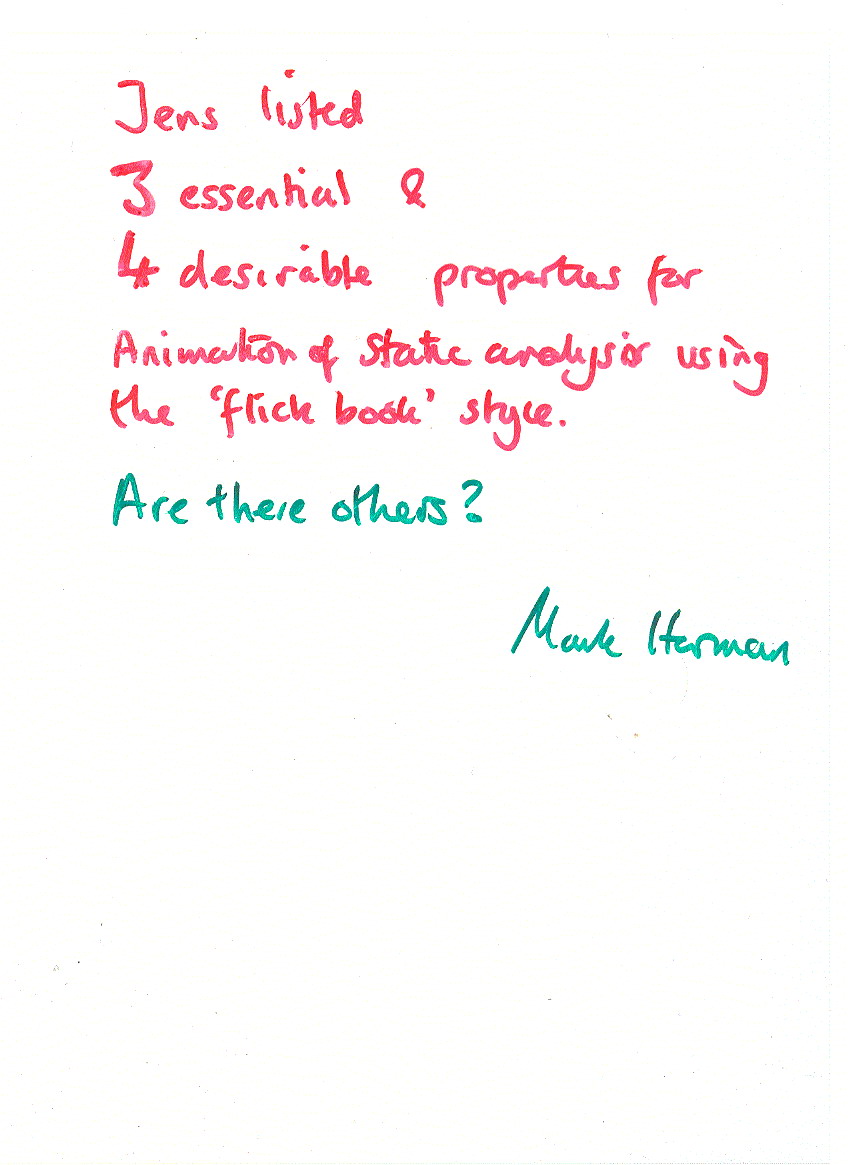 Jens listed
3 essential &
4 desirable properties for
Animation of static analysis using
the 'flick book' style.
Are there others?
Mark Harman